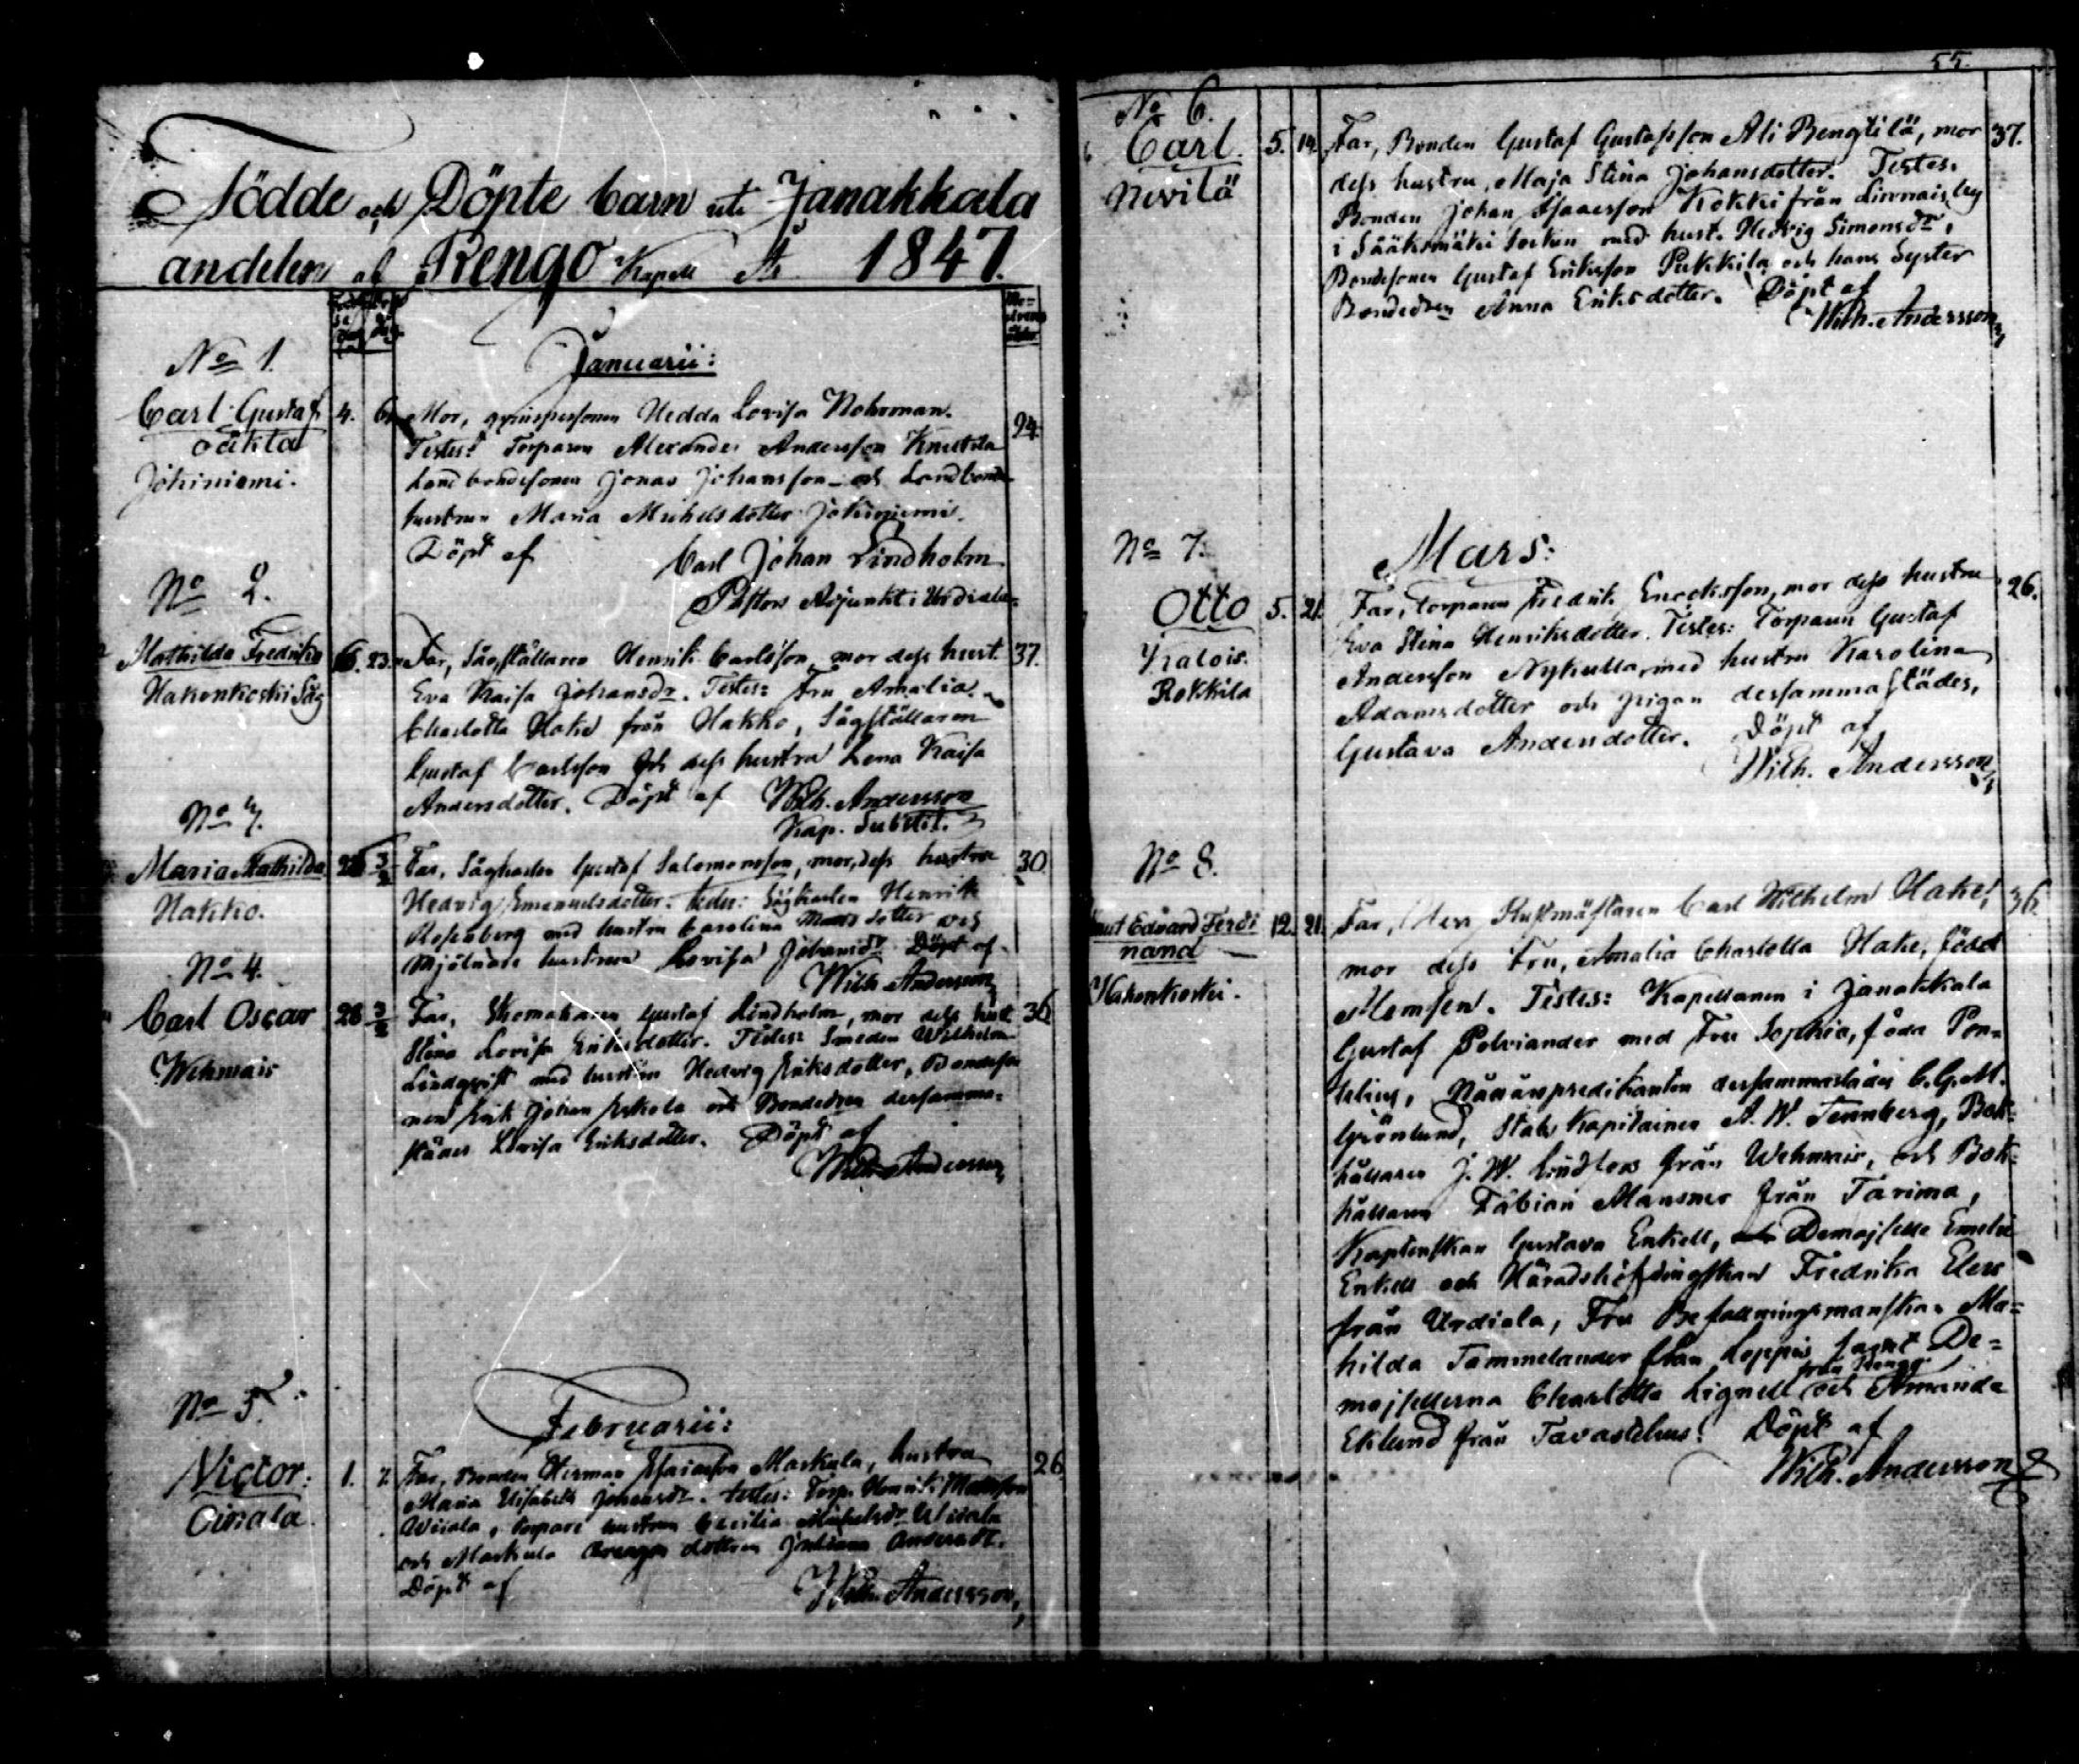 Födde och Döpte barn uti Janakkala
andelen af Rengo Kapell År 1847.
Januarii:
No 1.
Carl Gustaf
oäkta
Johiniemi.
4. 6. Mor, qvinspersonen Hedda Lovisa Nohrman. 24.
Testes: Torparen Alexander Andersson Knuttila
Landbondesonen Jonas Johansson och Landbonde
hustrun Maria Michelsdotter Johiniemi.
Döpt af Carl Johan Lindholm
Pastors Adjunkt i Urdiala
No 2.
Mathilda Fredrika
Hakonkoski Såg
6. 23. Far, Sågställaren Henrik Carlsson, mor dess hust. 37.
Eva Kaisa Johansdr. Testes: Fru Amalia
Charlotta Hake från Hakko, Sågställaren
Gustaf Carlsson och dess hustru Lena Kaisa
Andersdotter. Döpt af Wilh. Andersson
Kap. Substit.
No
Maria Mathilda
Hakko.
3/2 Far, Sågkarlen Gustaf Salomonsson, mor, dess hustru 30
Hedvig Emanuelsdotter. Testes: Sågkarlen Henrik
Rosenberg med hustru Carolina Matsdotter och
Mjölnare hustrun Lovisa Johansdr Döpt af
Wilh. Andersson
No 4.
Carl Oscar
Wehmais
28 3/2 Far, Skomakaren Gustaf Lindholm, mor dess hust. 36
Stina Lovisa Eriksdotter. Testes: Smeden Wilhelm
Lindqvist med hustru Hedvig Eriksdotter, Bondeso
nen Erik Johan Eskola och Bondedren dersamma-
städes Lovisa Eriksdotter. Döpt af
Wilh. Andersson
No 5.
Februarii:
Victor:
Oinala
1. 7. Far, Bonden Herman Esaiasson Markula, hustru 26
Maria Elisabeth Johansdr. testes: Torp. Henrik Matsson
Uisala, torpare hustrun Cecilia Michelsdr Uisala
och Markula drengen dottren Juliana Andersdr.
Döpt af Wilh. Andersson
55.
No 6.
Carl.
Nevilä
5. 14. Far, Bonden Gustaf Gustafsson Ali Bengtilä, mor 37.
dess hustru, Maja Stina Johansdotter. Testes:
Bonden Johan Isaacsson Kokki från Linnais by
i Sääksmäki Socken med hust. Hedvig Simonsdr,
Bondesonen Gustaf Eriksson Pukkila och hans Syster
Bondedren Anna Eriksdotter. Döpt af
Wilh. Andersson
Mars:
No 7.
Otto
Kalois.
Rekkila
5. 21. Far, torparen Fredrik Enocksson, mor dess hustru 26.
Eva Stina Henriksdotter. Testes: Torparen Gustaf
Andersson Nykulla, med hustru Karolina
Adamsdotter och pigan dersammastädes,
Gustava Andersdotter. Döpt af
Wilh. Andersson
No 8.
Knut Edvard Ferdi
nand
Hakonkoski.
12. 21. Far, Herr Rustmästaren Carl Wilhelm Hake, 36.
mor dess Fru, Amalia Charlotta Hake, född
Memsen. Testes: Kapellanen i Janakkala
Gustaf Polviander med Fru Sophia, föda Pon-
telius, Nåoårspredikanten dersammastädes C.G.M.
Grönlund, Stabs Kapitainen A. W. Tennberg, Bok-
hållaren J. W. Lindfors från Wehmais, och Bok-
hållaren Fabian Mansner från Tarima,
Kaptenskan Gustava Enkell, och Demoiselle Emelie
Enkell och Häradshöfdingskan Fredrika Elers
från Urdiala, Fru Befallningsmanskan Ma-
hilda Tammelander från Loppis samt De-
moisellerna Charlotta Lignell från Rengo och Amanda
Eklund från Tavastehus. Döpt af
Wilh. Andersson